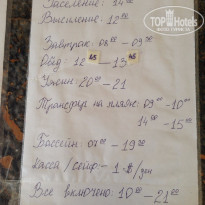 TOP HOTELS
Заселение: 14⁰⁰
Выселение: 12⁰⁰
Завтрак: 08⁰⁰ – 09³⁰
Обед: 12⁴⁵ – 13⁴⁵
Ужин: 20⁰⁰ – 21
Трансфер на пляж: 09⁰⁰ – 10⁰⁰
14⁰⁰ – 15⁰⁰
Бассейн: 07⁰⁰ – 19³⁰
Касса / сейф: – 1 $ / день
Все включено: 10⁰⁰ – 21⁰⁰